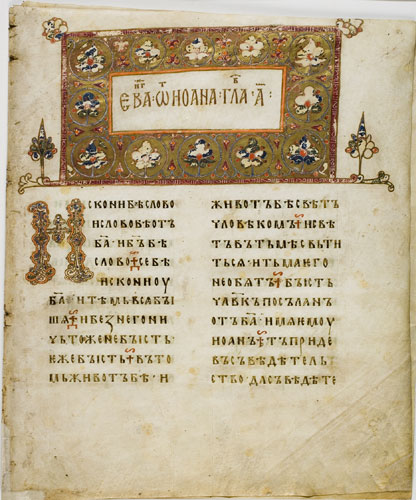 ЄВА҃Г҃ ѾИОАНА · ГЛА҃В · А҃ ⁘
ИСКОНИ БѢ СЛОВО
И СЛОВО БѢ ОТЪ
Б҃А · И Б҃Ъ БѢ
СЛОВО ⁘ СЕ БѢ
ИСКОНИ ОУ
Б҃А · И ТѢМЬ ВЬСА БЫ
ША ⁘ И БЕЗ НЕГО НИ
ЧЬТОЖЕ НЕ БЫСТЬ ·
ЕЖЕ БЫСТЬ ⁘ ВЪ ТО
МЬ ЖИВОТЪ БѢ · И
ЖИВОТЪ БѢ СВѢТЪ
ЧЛОВѢКОМЪ ⁘ И СВѢ
ТЪ ВЪ ТЬМѢ СВЬТИ
ТЬ СѦ · И ТЬМА ѤГО
НЕ ОБѦТЪ ⁘ БЫСТЬ
ЧЛ҃ВКЪ ПОСЪЛАНЪ
ОТЪ Б҃А · ИМѦ ѤМОУ
ИОАНЪ ⁘ ТЪ ПРИДЕ
ВЪ СЪВѢДѢТЕЛЬ
СТВО · ДА СЪВѢДѢТЕ